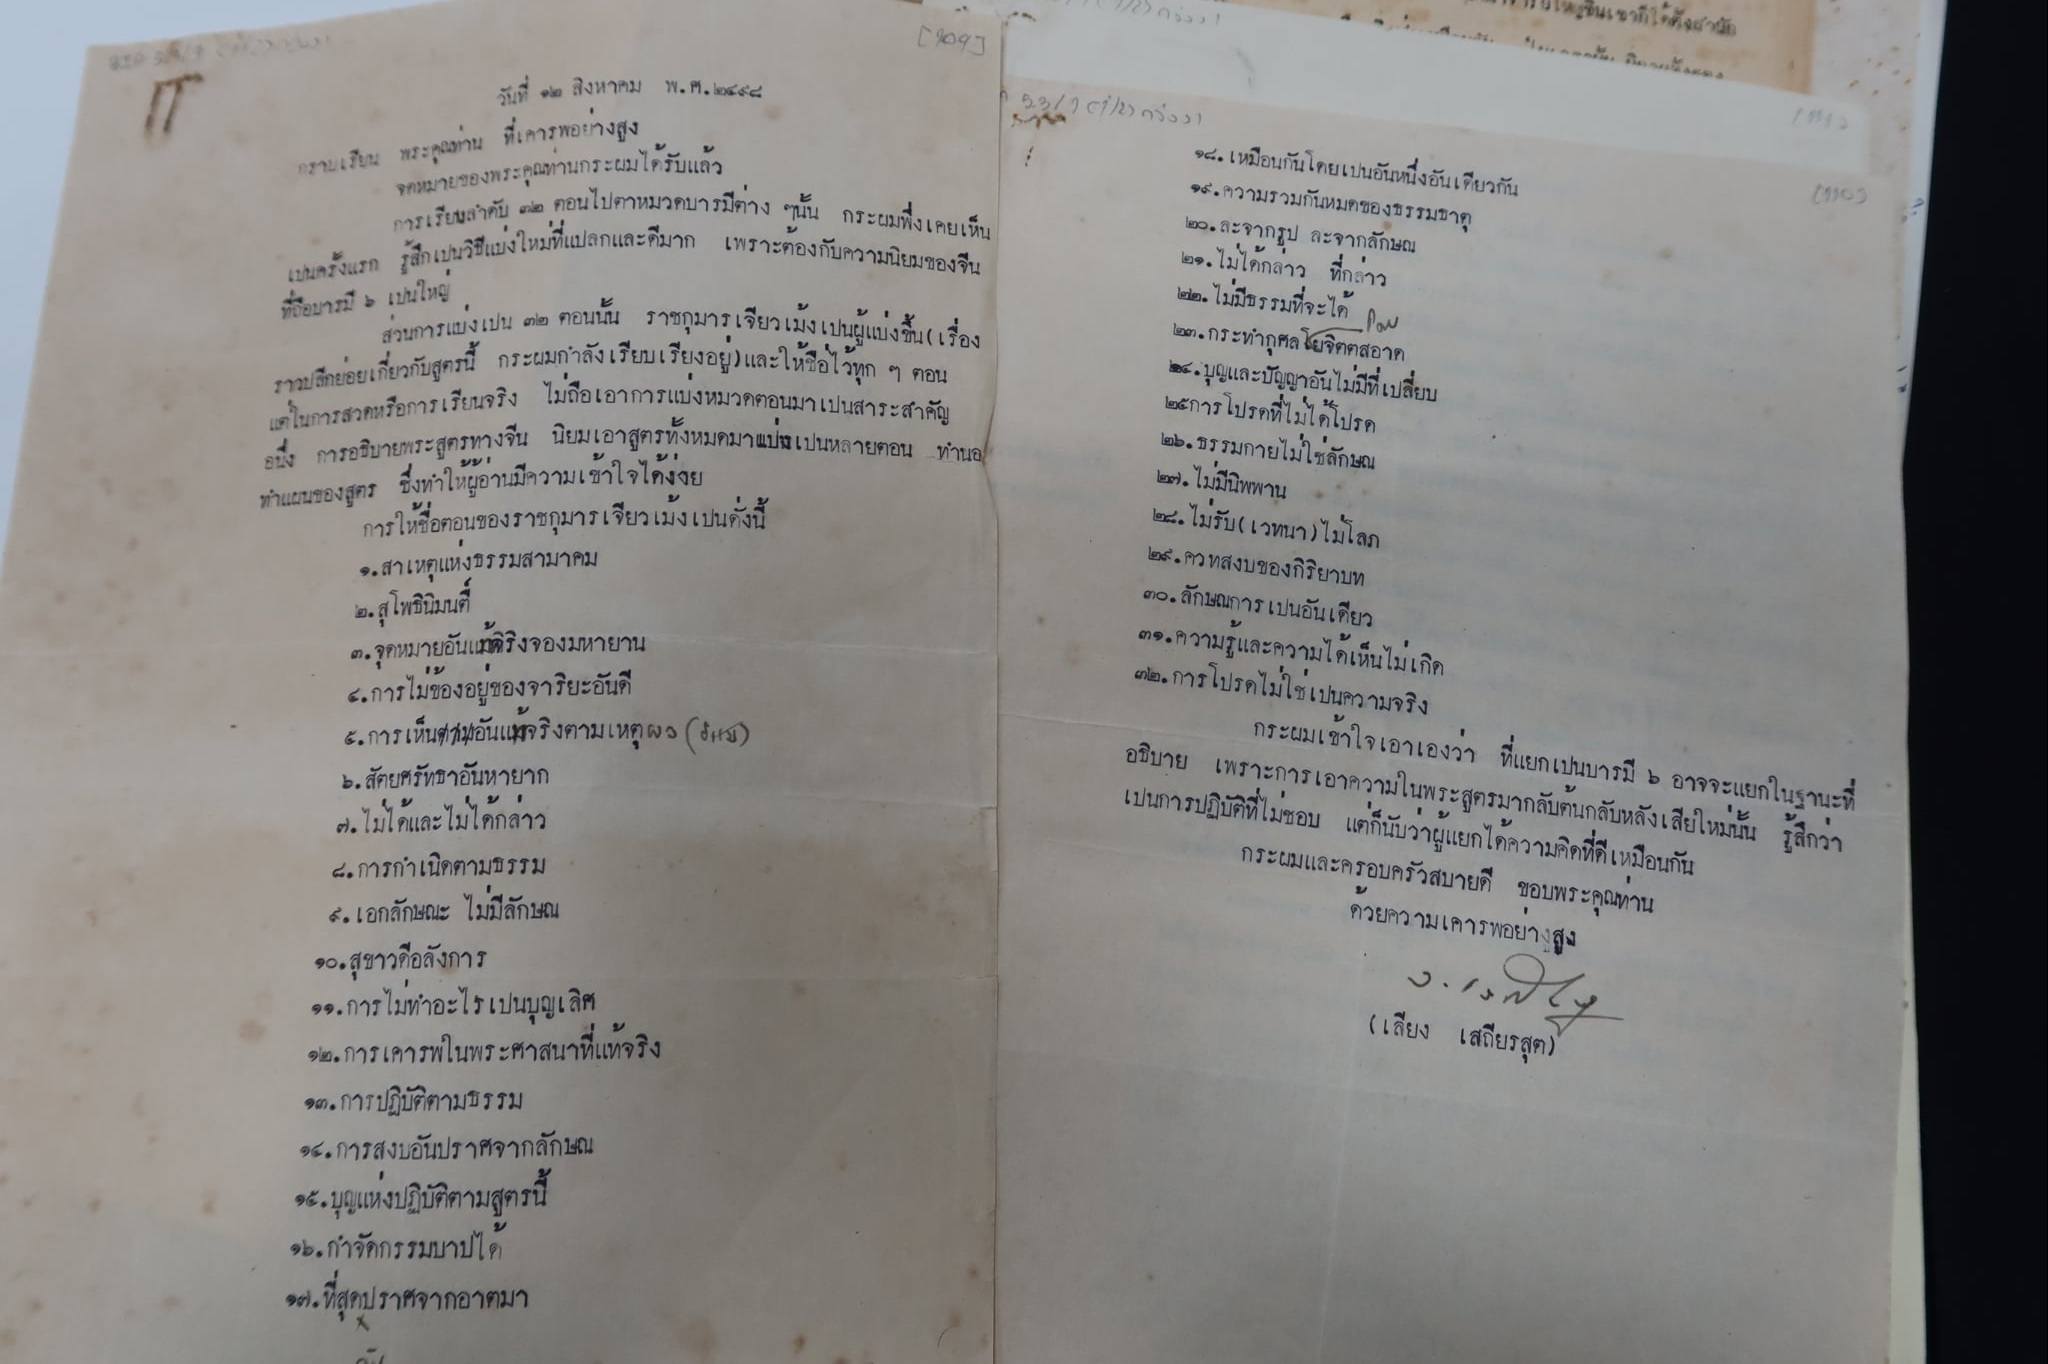 [๑๐๑]
วันที่ ๑๒ สิงหาคม พ.ศ.๒๔๙๘
กราบเรียน พระคุณท่าน ที่เคารพอย่างสูง
จดหมายของพระคุณท่านกระผมได้รับแล้ว
การเรียนลำดับ ๓๒ ตอนไปตามหมวดบารมีต่าง ๆนั้น กระผมพึ่งเคยเห็น
เปนครั้งแรก รู้สึกเปนวิธีแบ่งใหม่ที่แปลกและดีมาก เพราะต้องกับความนิยมของจีน
ที่ถือบารมี ๖ เปนใหญ่
ส่วนการแบ่งเปน ๓๒ ตอนนั้น ราชกุมารเจียวเม้งเปนผู้แบ่งขึ้น(เรื่อง
ราวปลีกย่อยเกี่ยวกับสูตรนี้ กระผมกำลังเรียบเรียงอยู่)และให้ชื่อไว้ทุก ๆ ตอน
แต่ในการสวดหรือการเรียนจริง ไม่ถือเอาการแบ่งหมวดตอนมาเปนสาระสำคัญ
อนึ่ง การอธิบายพระสูตรทางจีน นิยมเอาสูตรทั้งหมดมาแบ่งเปนหลายตอน ทำนอ
ทำแผนของสูตร ซึ่งทำให้ผู้อ่านมีความเข้าใจได้ง่าย
การให้ชื่อตอนของราชกุมารเจียวเม้งเปนดั่งนี้
๑.สาเหตุแห่งธรรมสามาคม
๒.สุโพธินิมนตี์
๓.จุดหมายอันแท้จริงจองมหายาน
๔.การไม่ข้องอยู่ของจาริยะอันดี
๕.การเห็นตามอันแท้จริงตามเหตุผล
๖.สัตยศรัทธาอันหายาก
๗.ไม่ได้และไม่ได้กล่าว
๘.การกำเนิดตามธรรม
๙.เอกลักษณะ ไม่มีลักษณ
๑๐.สุขาวดีอลังการ
๑๑.การไม่ทำอะไรเปนบุญเลิศ
๑๒.การเคารพในพระศาสนาที่แท้จริง
๑๓.การปฏิบัติตามธรรม
๑๔.การสงบอันปราศจากลักษณ
๑๕.บุญแห่งปฏิบัติตามสูตรนี้
๑๖.กำจัดกรรมบาปได้
๑๗.ที่สุดปราศจากอาตมา
[๑๑๐]
๑๘.เหมือนกันโดยเปนอันหนึ่งอันเดียวกัน
๑๙.ความรวมกันหมดของธรรมธาตุ
๒๐.ละจากรูป ละจากลักษณ
๒๑.ไม่ได้กล่าว ที่กล่าว
๒๒.ไม่มีธรรมที่จะได้
๒๓.กระทำกุศลโยจิตตสอาด
๒๔.บุญและปัญญาอันไม่มีที่เปลี่ยบ
๒๕การโปรดที่ไม่ได้โปรด
๒๖.ธรรมกายไม่ใช่ลักษณ
๒๗.ไม่มีนิพพาน
๒๘.ไม่รับ(เวทนา)ไม่โลภ
๒๙.ควทสงบของกิริยาบท
๓๐.ลักษณการเปนอันเดียว
๓๑.ความรู้และความได้เห็นไม่เกิด
๓๒.การโปรดไม่ใช่เปนความจริง
กระผมเข้าใจเอาเองว่า ที่แยกเปนบารมี ๖ อาจจะแยกในฐานะที่
อธิบาย เพราะการเอาความในพระสูตรมากลับต้นกลับหลังเสียใหม่นั้น รู้สึกว่า
เปนการปฏิบัติที่ไม่ชอบ แต่ก็นับว่าผู้แยกได้ความคิดที่ดีเหมือนกัน
กระผมและครอบครัวสบายดี ขอบพระคุณท่าน
ด้วยความเคารพอย่างสูง
(เลียง เสถียรสุต)